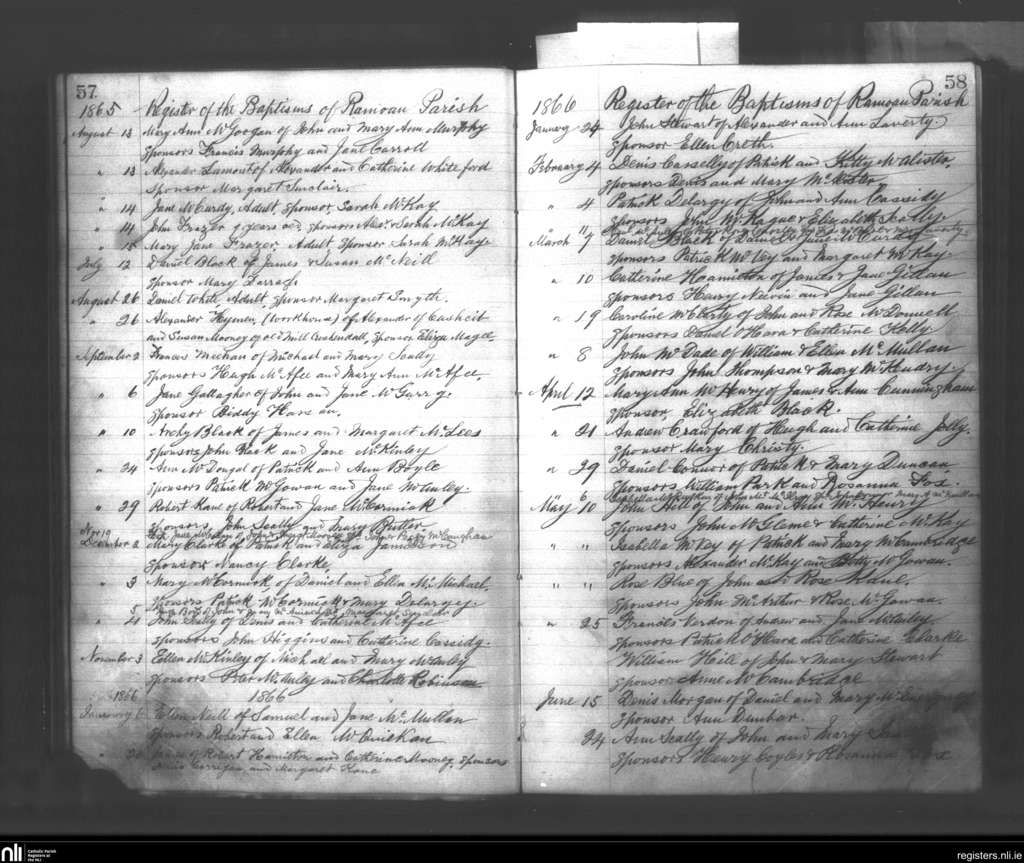 57
1865 Register of the Baptisms of Ramoan Parish
August 13 Mary Ann McGoogan of John and Mary Ann Murphy
Sponsors Francis Murphy and Jane Carroll
" 13 Alexander Lamont of Alexander and Catherine Whiteford
Sponsor Margaret Sinclair.
" 14 Jane McCurdy, Adult, Sponsor, Sarah McKay
" 14 John Frazer 9 years old, Sponsors Sarah McKay
" 15 Mary Jane Frazer Adult Sponsor Sarah McKay
July 12 Daniel Black of James & Susan McNeill
Sponsor Mary Darragh
August 26 Daniel White, Adult, Sponsor Margaret Smyth.
" 26 Alexander (Workhouse) of Alexander of
and Susan Mooney of old mill Cushendall, Sponsor Eliza Magee
September 2 Frances Meehan of Michael and Mary Scally
Sponsors Hugh McAfee and Mary Ann McAfee.
" 6 Jane Gallagher of John and Jane McGarry.
Sponsor Biddy
" 10 Archy Black of James and Margaret McLees
Sponsors John Black and Jane McKinley
" 24 Ann McDougal of Patrick and Ann Boyle
Sponsors Patrick McGowan and Jane McAuley.
" 29 Robert Kane of Robert and Jane McCormick
Sponsors, John Scally and Mary Butler
Novr 19 Jane of John McCaughan
December 2 Mary Clarke of Patrick and Eliza Jamieson
Sponsor Nancy Clarke,
" 3 Mary McCormick of David and Ellen McMichael,
Sponsors Patrick McCormick & Mary Delargy.
5 of John & Margaret
" 21 John Scally of Denis and Catherine McAfee
Sponsors John Higgins and Catherine Cassidy.
November 3 Ellen McKinley of Michael and Mary McAuley
Sponsors Peter McAuley and Charlotte Robinson
1866 1866
January 6 Ellen Neill of Samuel and Jane McMullan
Sponsors Robert and Ellen McQuickan
" of Robert Hamilton and Catherine Mooney, Sponsors
Denis Corrigan, and Margaret Kane
58
1866 Register of the Baptisms of Ramoan Parish
January 24 John Stewart of Alexander and Ann Laverty
Sponsor Ellen Creth.
February 4 Denis Casselly of Patrick and Kitty McAlister,
Sponsors Denis and Mary McAlister,
" 4 Patrick Delargy of John and Ann Cassidy
Sponsors John McKague & Elizabeth Scally.
March 7 Daniel Black of Daniel & Jane McCurdy
Sponsors Patrick McVey and Margaret McKay
" 10 Catherine Hamilton of James & Jane Gillan
Sponsors Henry Nievin and Jane Gillan
" 19 Caroline McCarty of John and Rose McDonnell
Sponsors Daniel O'Hara & Catherine Kelly
" 8 John McDade of William & Ellen McMullan
Sponsors John Thompson & Mary McKendry
April 12 Mary Ann McHenry of James & Ann Cunningham
Sponsor, Elizabeth Black.
" 21 Andrew Crawford of Hugh and Catherine Jelly.
Sponsor Mary Christy.
" 29 Daniel Connor of Patrick & Mary Duncan
Sponsors William Park and Rosanna Fox.
6 of John
May 10 John Hill of John and Ann McHenry
Sponsors John McGleme & Catherine McKay
" " Isabella McVey of Patrick and Mary McCambridge
Sponsors Alexander McKay and Betty McGowan.
" " Rose Blue of John and Rose Kane,
Sponsors John McArthur & Rose McGowan.
" 25 Francis Verdon of Andrew and Jane McAuley
Sponsors Patrick O'Hara and Catherine Clarke
William Hill of John & Mary Stewart
Sponsor Anne McCambridge
June 15 Denis Morgan of Daniel and Mary
Sponsor Ann Dunbar.
24 Ann Scally of John and Mary
Sponsors Henry Coyles & Rosanna Fox
nli Catholic Parish
Registers at
the NLI
registers.nli.ie